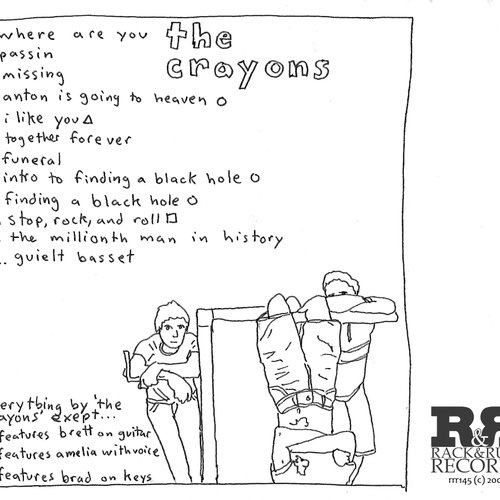 where are you
passin
missing
anton is going to heaven o
i like you △
together forever
funeral
intro to finding a black hole o
finding a black hole o
stop, rock, and roll □
the millionth man in history
.. guielt basset
the
crayons
erything by 'the
ayons' exept...
features brett on guitar
features amelia with voice
features brad on keys
R&R
RACK&RU
RECOR
rrr145 (c) 200